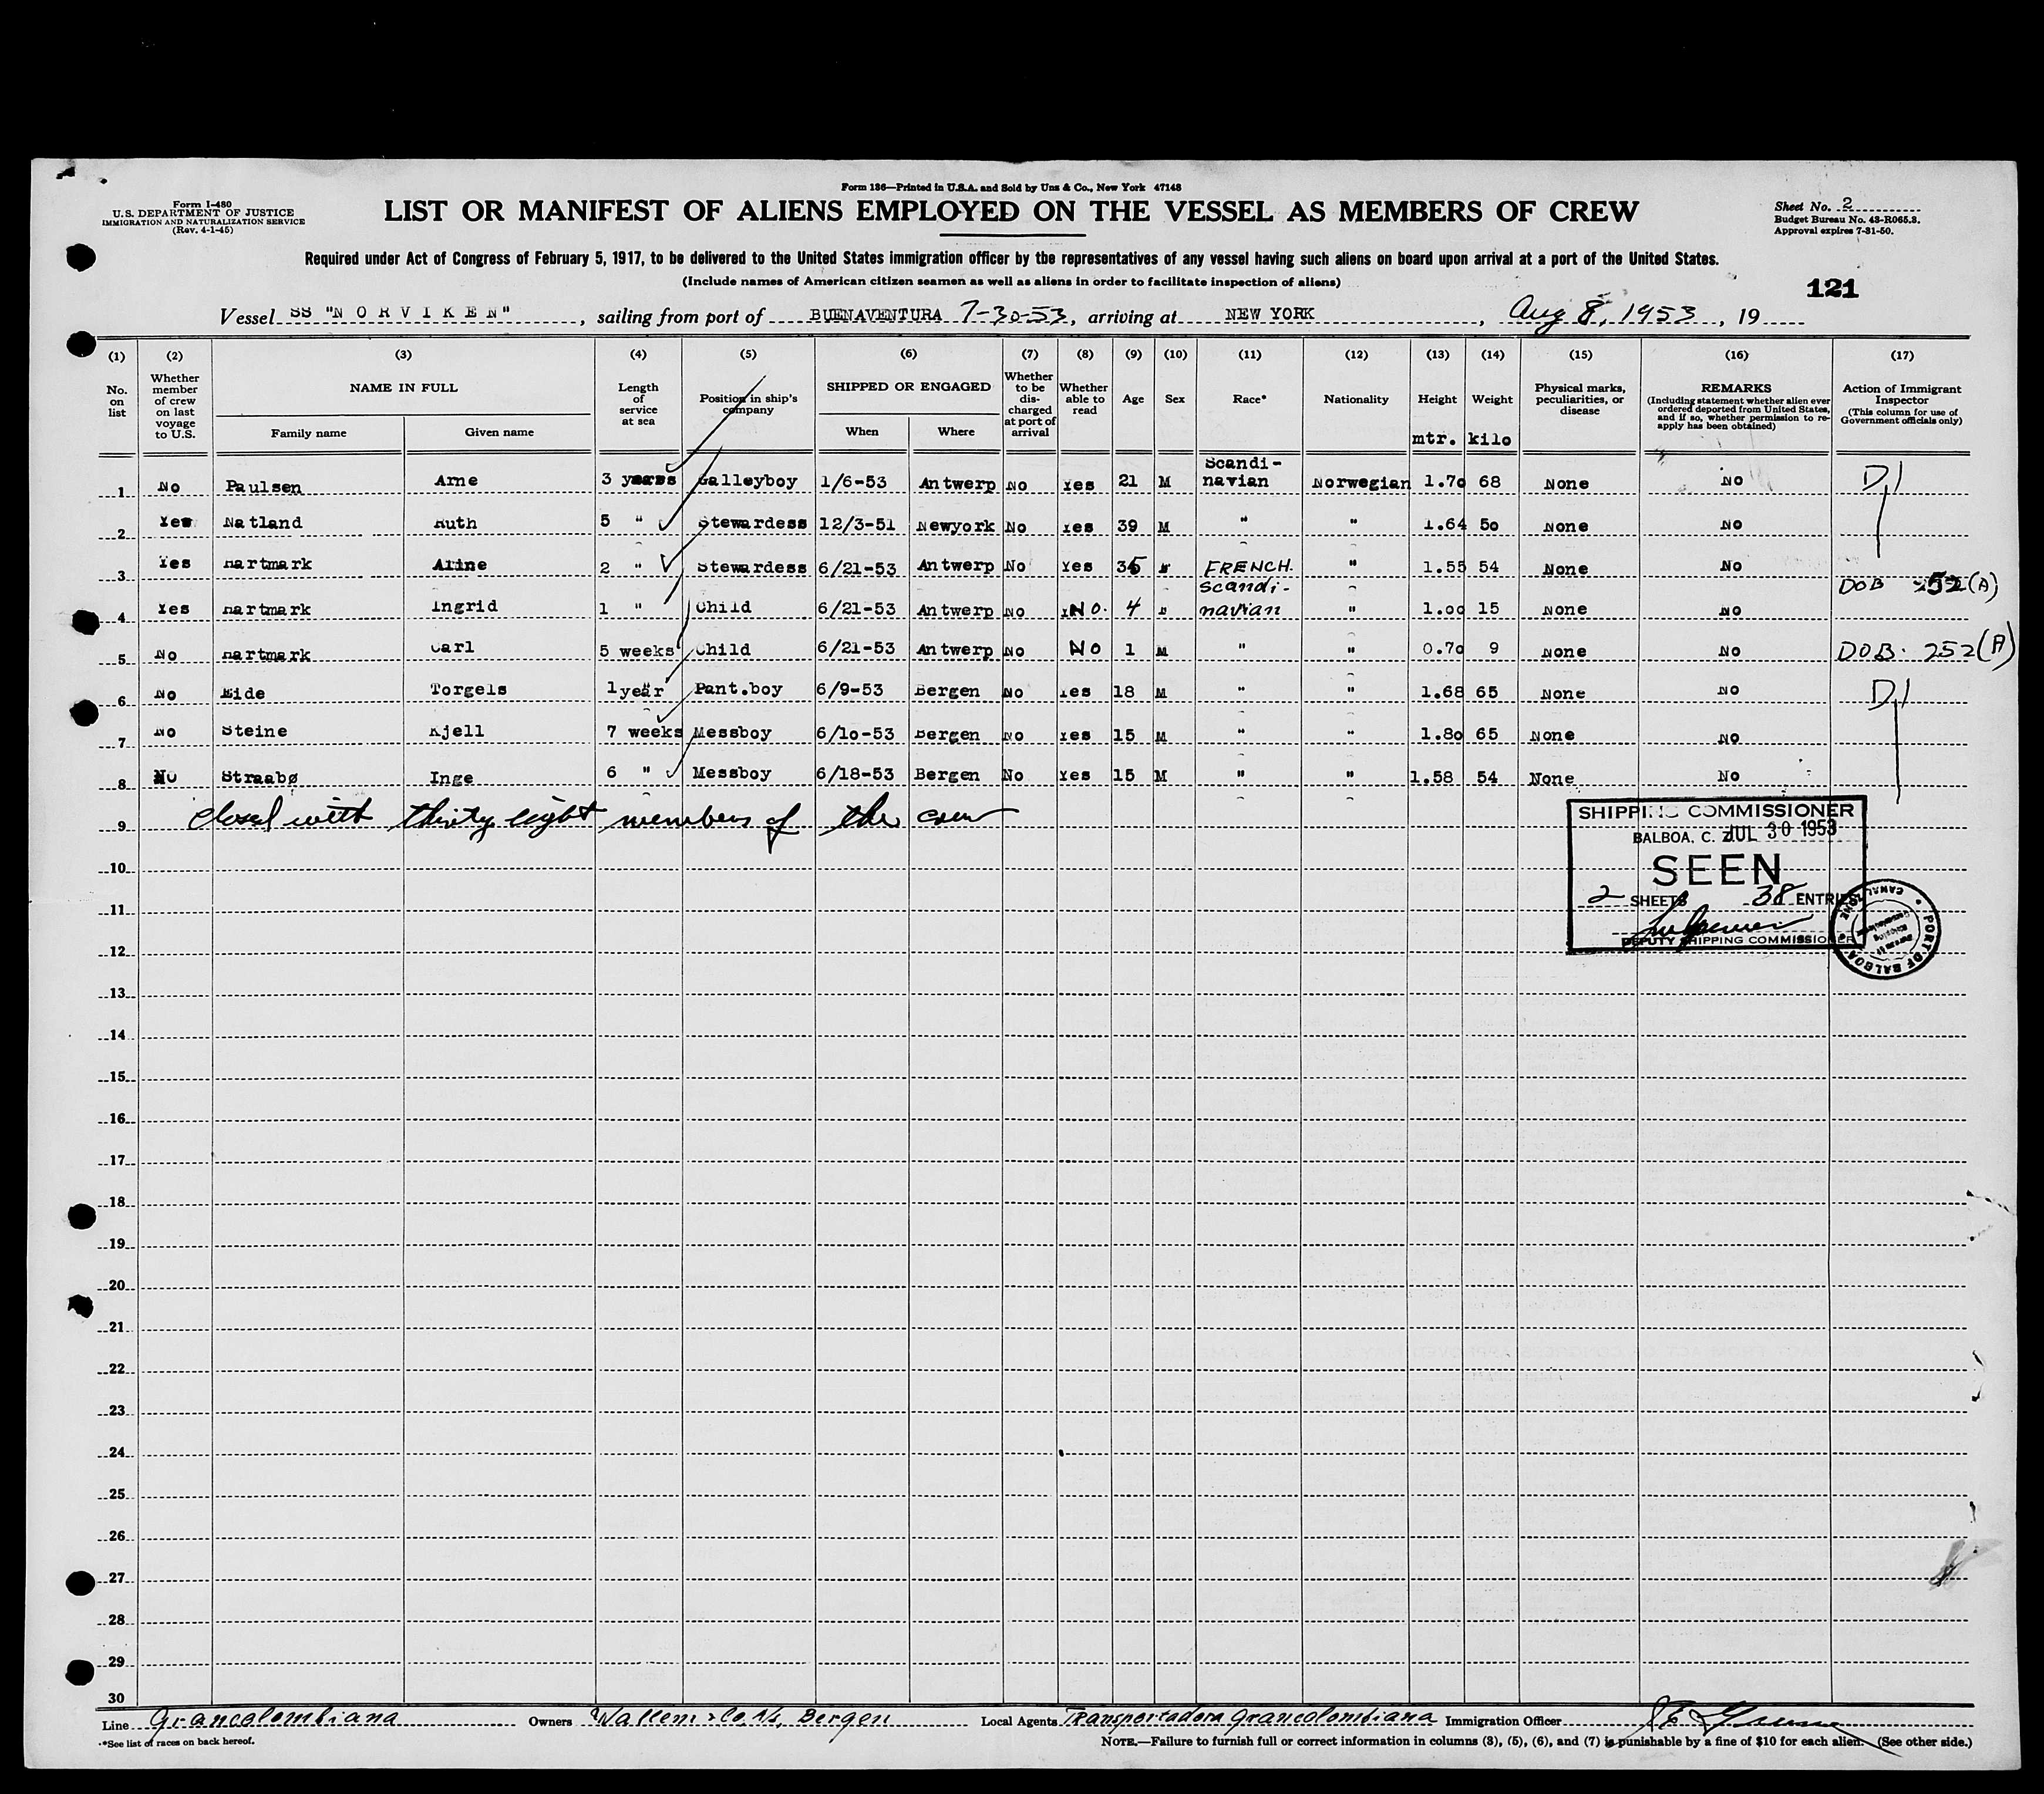 Form 136—Printed in U.S.A. and Sold by Unz & Co., New York 47148
Form I-480
U.S. DEPARTMENT OF JUSTICE
IMMIGRATION AND NATURALIZATION SERVICE
(Rev. 4-1-45)
LIST OR MANIFEST OF ALIENS EMPLOYED ON THE VESSEL AS MEMBERS OF CREW
Sheet No. 2
Budget Bureau No. 43-R065.3.
Approval expires 7-31-50.
Required under Act of Congress of February 5, 1917, to be delivered to the United States immigration officer by the representatives of any vessel having such aliens on board upon arrival at a port of the United States.
(Include names of American citizen seamen as well as aliens in order to facilitate inspection of aliens)
121
Vessel SS "NORVIKEN", sailing from port of BUENAVENTURA 7-30-53, arriving at NEW YORK, Aug 8, 1953, 19
(1) (2) (3) (4) (5) (6) (7) (8) (9) (10) (11) (12) (13) (14) (15) (16) (17)
No. on list
Whether member of crew on last voyage to U.S.
NAME IN FULL
Family name Given name
Length of service at sea
Position in ship's company
SHIPPED OR ENGAGED
When Where
Whether to be discharged at port of arrival
Whether able to read
Age
Sex
Race*
Nationality
Height mtr.
Weight kilo
Physical marks, peculiarities, or disease
REMARKS
(Including statement whether alien ever ordered deported from United States, and if so, whether permission to re-apply has been obtained)
Action of Immigrant Inspector
(This column for use of Government officials only)
1 No Paulsen Arne 3 years Galleyboy 1/6-53 Antwerp No Yes 21 M Scandi-navian Norwegian 1.70 68 None No D1
2 Yes Natland Ruth 5 " Stewardess 12/3-51 Newyork No Yes 39 M " " 1.64 50 None No
3 Yes Hartmark Aline 2 " Stewardess 6/21-53 Antwerp No Yes 35 FRENCH " 1.55 54 None No
4 Yes Hartmark Ingrid 1 " Child 6/21-53 Antwerp No No. 4 Scandi-navian " 1.00 15 None No DOB 252(A)
5 No Hartmark Carl 5 weeks Child 6/21-53 Antwerp No No 1 M " " 0.70 9 None No DOB. 252(A)
6 No Eide Torgels 1 year Pant.boy 6/9-53 Bergen No Yes 18 M " " 1.68 65 None No D1
7 No Steine Kjell 7 weeks Messboy 6/10-53 Bergen No Yes 15 M " " 1.80 65 None No
8 No Straabø Inge 6 " Messboy 6/18-53 Bergen No Yes 15 M " " 1.58 54 None No
9 Closed with thirty eight members of the crew
SHIPPING COMMISSIONER
BALBOA, C. Z. JUL 30 1953
SEEN
2 SHEETS 38 ENTRIES
DEPUTY SHIPPING COMMISSIONER
PORT OF BALBOA
CANAL ZONE
10
11
12
13
14
15
16
17
18
19
20
21
22
23
24
25
26
27
28
29
30
Line Grancolombiana Owners Wallem & Co. A/S, Bergen Local Agents Transportadora Grancolombiana Immigration Officer
*See list of races on back hereof.
NOTE.—Failure to furnish full or correct information in columns (3), (5), (6), and (7) is punishable by a fine of $10 for each alien. (See other side.)